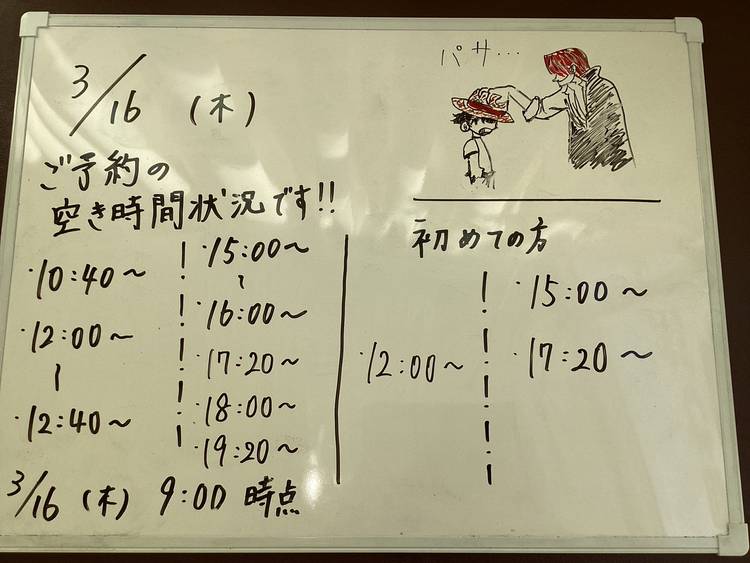 3/16 (木)
ご予約の
空き時間状況です!!
・10:40～
・12:00～
～
・12:40～
・15:00～
～
・16:00～
・17:20～
・18:00～
・19:20～
3/16 (木) 9:00 時点
パサ...
初めての方
・12:00～
・15:00～
・17:20～